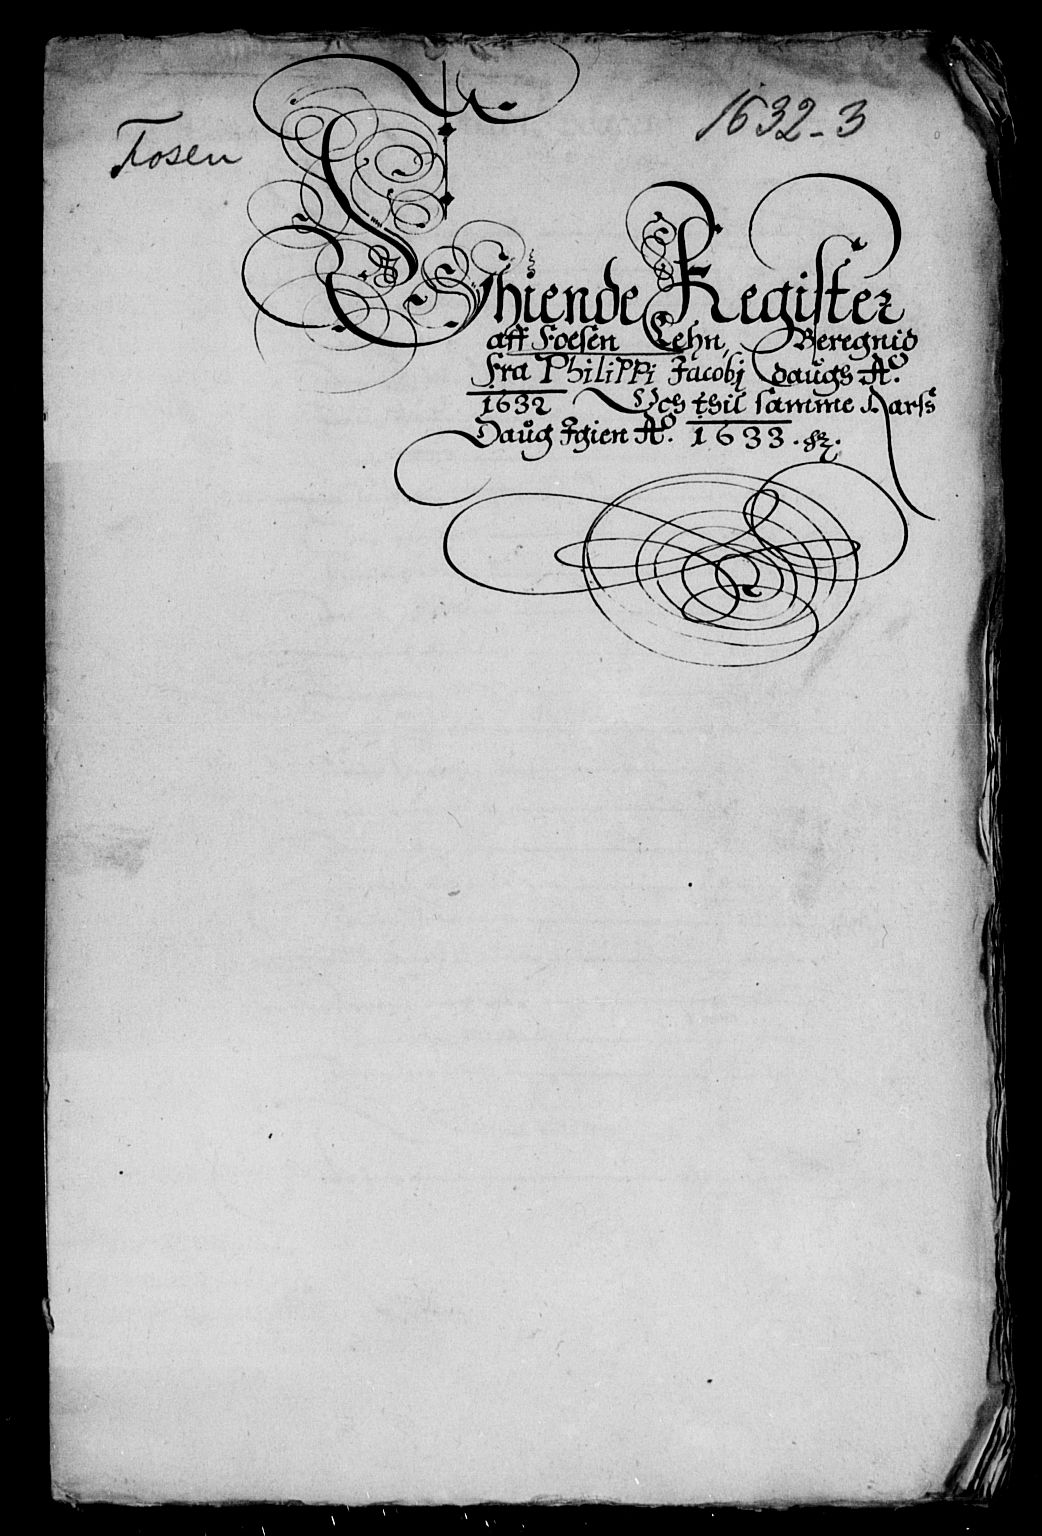 Fosen
1632-3
Thiende Register
aff Foesen Lehn, Beregnid
Fra Philippi Jacobj daugh Aº.
1632 Och thil samme Aarss
Daug Igien Aº. 1633.